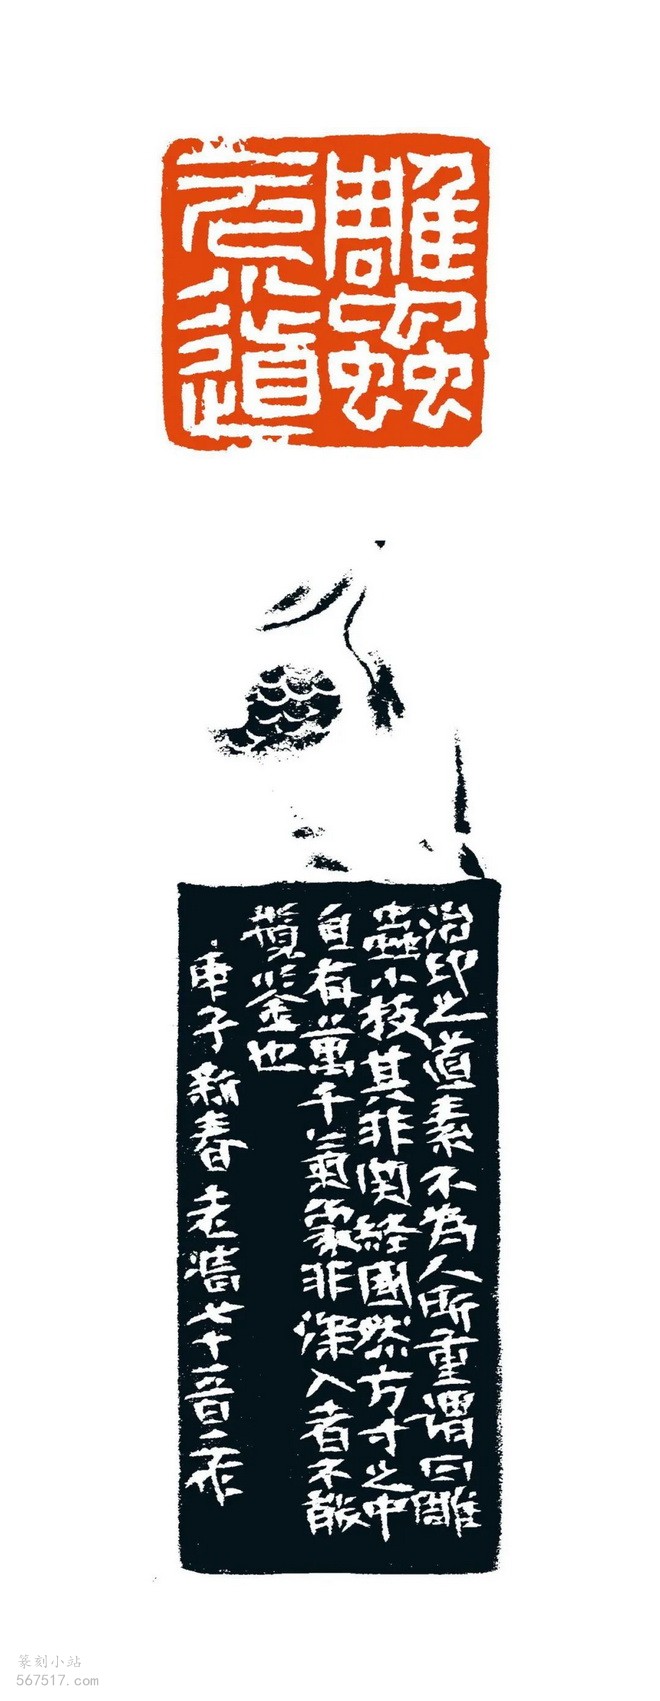 雕蟲
道
治印之道素不為人所重謂曰雕
蟲小技其非関経國然方寸之中
自有萬千氣象非深入者不能
也
庚子新春老七十晉二作
篆刻小站
567517.com